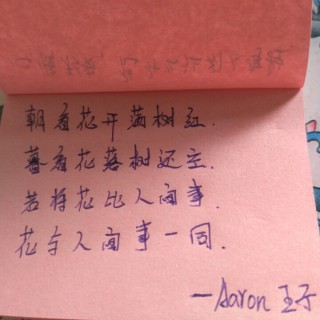 朝看花开满树红.
暮看花落树还空.
若将花比人间事.
花与人间事一同.
—Aaron 王子